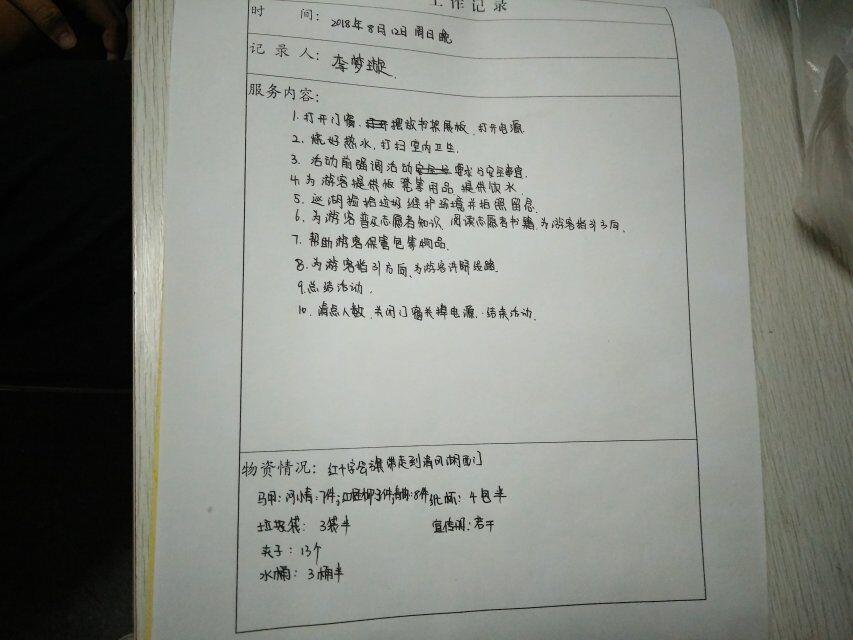 工作记录
时 间: 2018年8月12日周日晚
记 录 人: 李梦璇.
服务内容:
1. 打开门窗. 摆放书架展板. 打开电源.
2. 烧好热水, 打扫室内卫生.
3. 活动前强调活动要求与安全事宜.
4. 为游客提供板凳等用品 提供饮水.
5. 巡湖捡拾垃圾维护环境并拍照留念.
6. 为游客普及志愿者知识 阅读志愿者书籍. 为游客指引方向.
7. 帮助游客保管包等物品.
8. 为游客指引方向, 为游客讲解线路.
9. 总结活动.
10. 清点人数. 关闭门窗关掉电源. 结束活动.
物资情况: 红十字会旗带走到清风湖西门
马甲: 7件, 8件 纸杯: 4包半
垃圾袋: 3袋半 宣传册: 若干
夹子: 13个
水桶: 3桶半